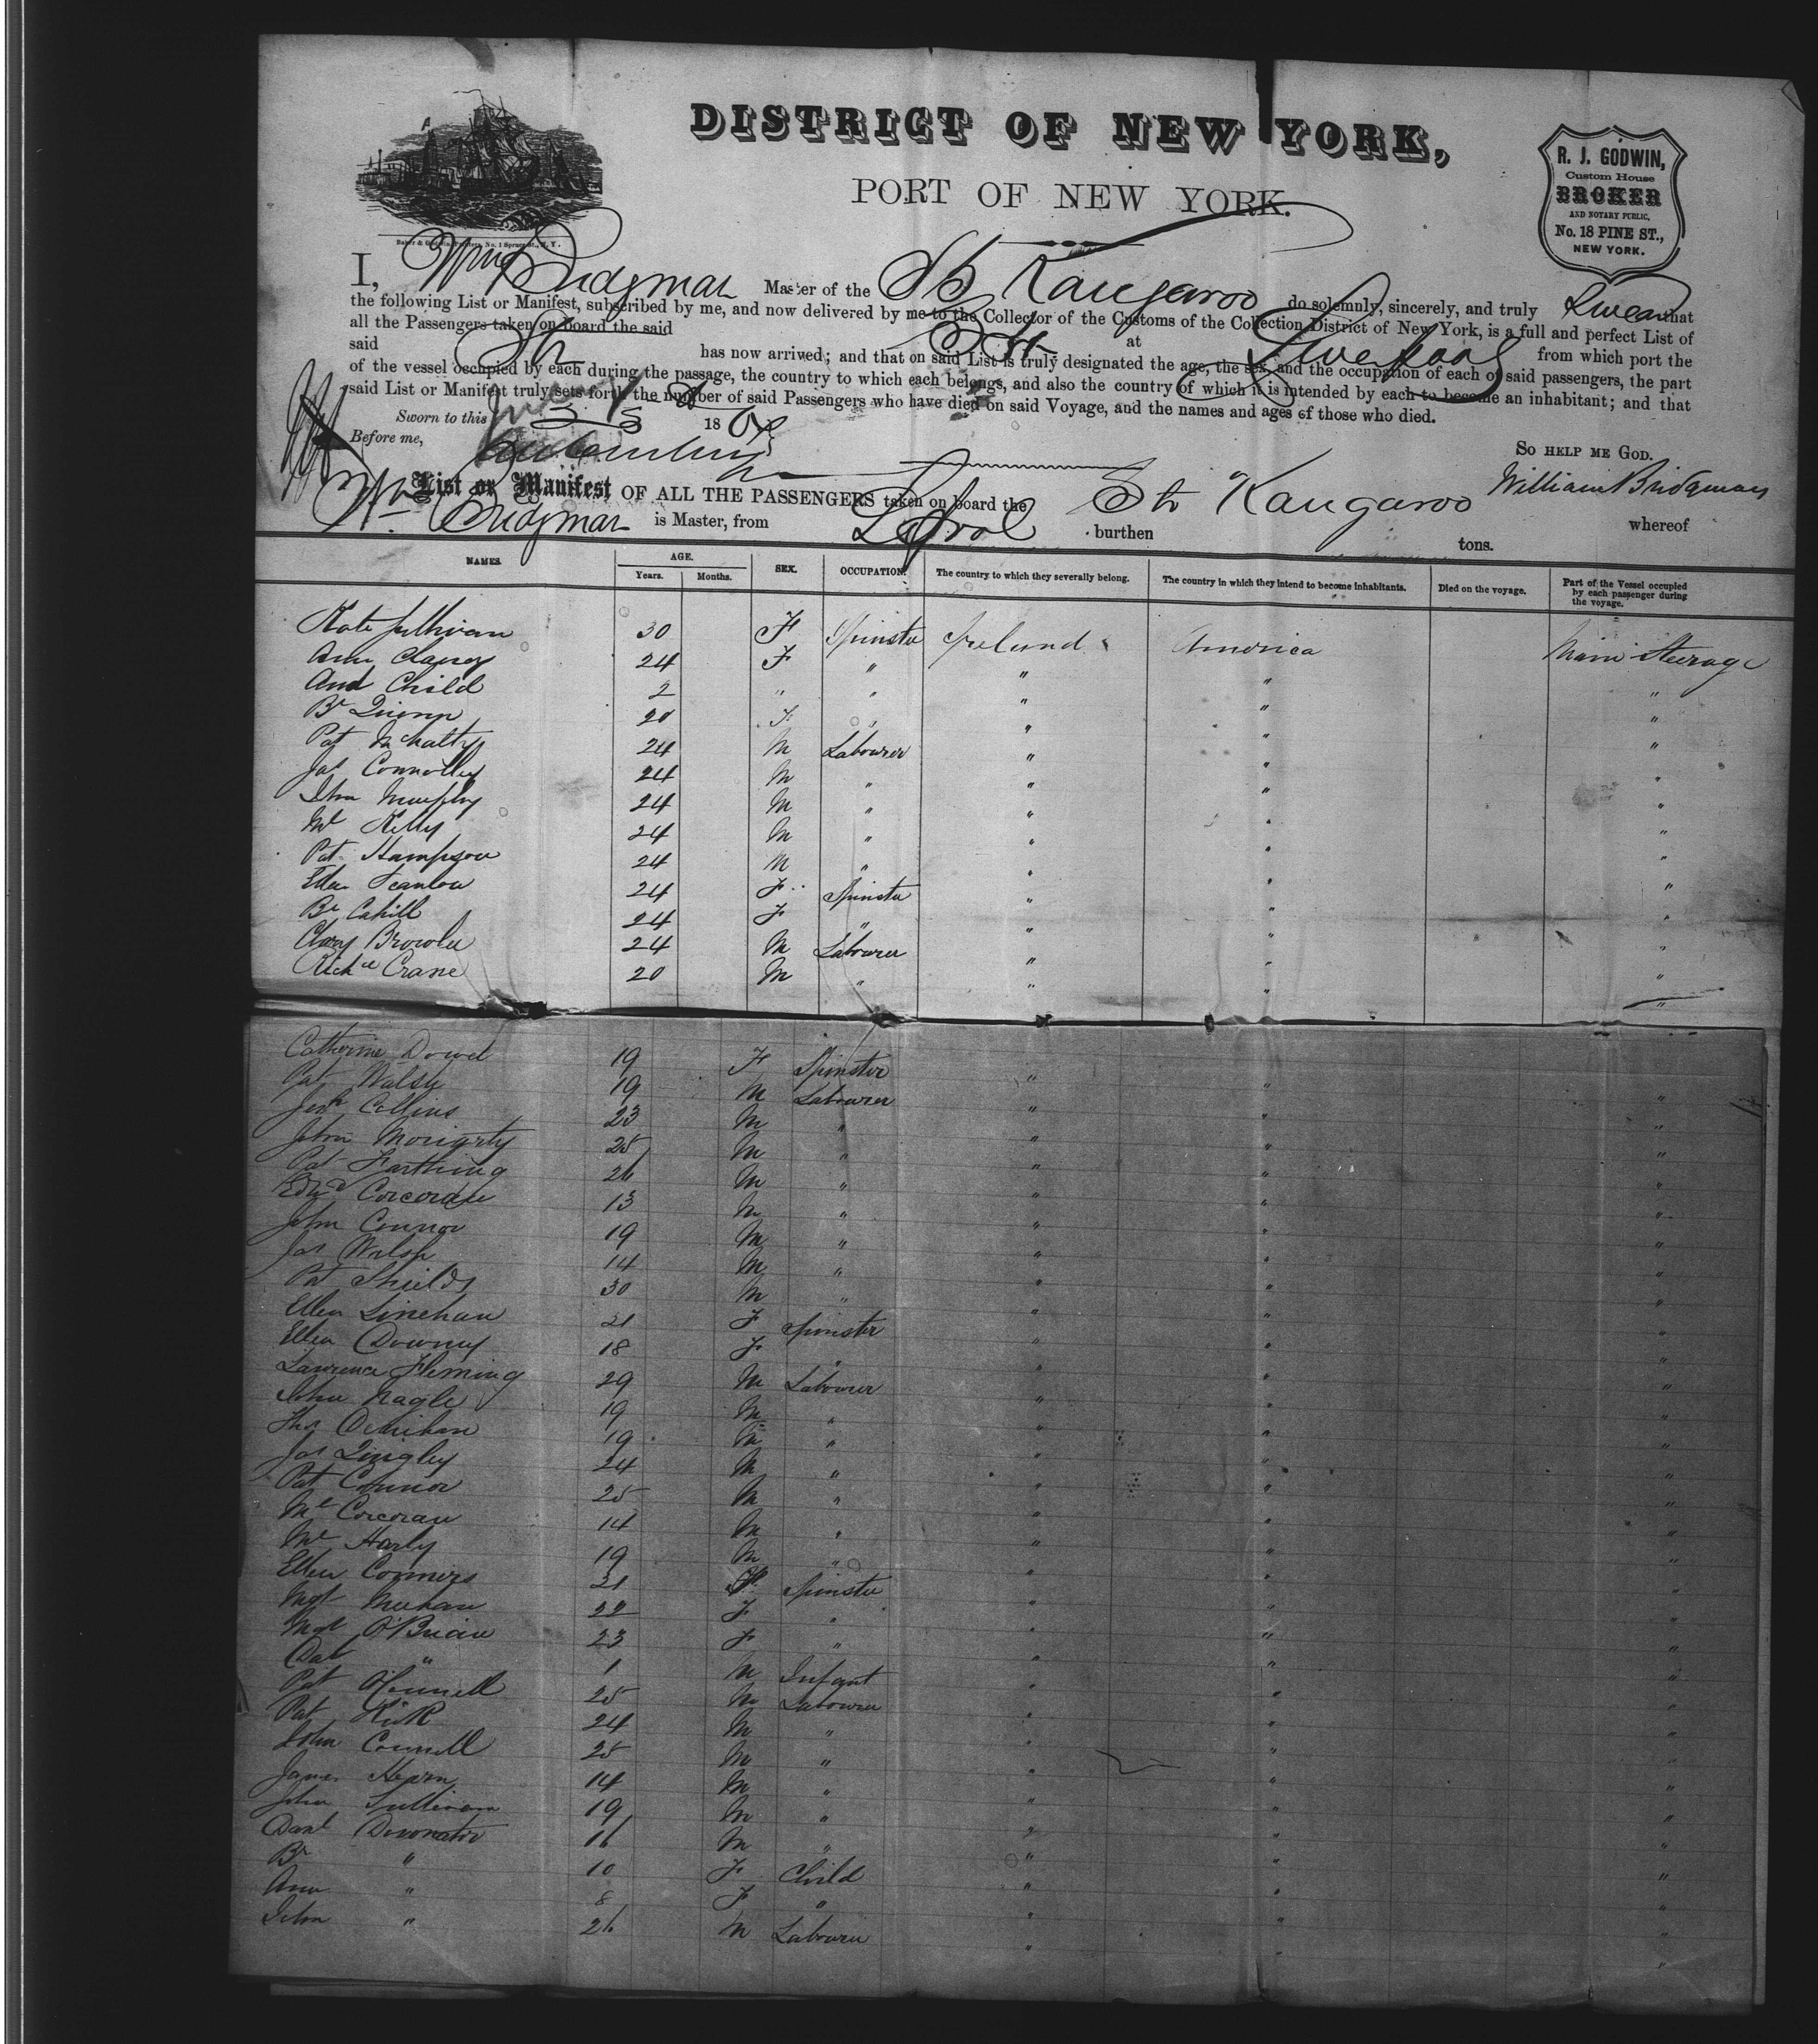 DISTRICT OF NEW YORK,
PORT OF NEW YORK.
R. J. GODWIN,
Custom House
BROKER
AND NOTARY PUBLIC,
No. 18 PINE ST.,
NEW YORK.
Baker & Godwin, Printers, No. 1 Spruce St., N. Y.
I, Wm Bridgman Master of the Str Kangaroo do solemnly, sincerely, and truly Swear that
the following List or Manifest, subscribed by me, and now delivered by me to the Collector of the Customs of the Collection District of New York, is a full and perfect List of
all the Passengers taken on board the said Str at Liverpool from which port the
said Str has now arrived; and that on said List is truly designated the age, the sex, and the occupation of each of said passengers, the part
of the vessel occupied by each during the passage, the country to which each belongs, and also the country of which it is intended by each to become an inhabitant; and that
said List or Manifest truly sets forth the number of said Passengers who have died on said Voyage, and the names and ages of those who died.
Sworn to this 18
Before me,
SO HELP ME GOD.
William Bridgman
List or Manifest OF ALL THE PASSENGERS taken on board the Str Kangaroo whereof
Wm Bridgman is Master, from L'pool burthen tons.
NAMES. AGE. SEX. OCCUPATION. The country to which they severally belong. The country in which they intend to become inhabitants. Died on the voyage. Part of the Vessel occupied by each passenger during the voyage.
Years. Months.
Kate Sullivan 30 F Spinster Ireland America Main Steerage
Ann Clancy 24 F " " " "
And Child 2 " " " " "
Br Quinn 20 F " " " "
Pat McNalty 24 M Labourer " " "
Jas Connolley 24 M " " " "
John Murphy 24 M " " " "
Ml Kelly 24 M " " " "
Pat Hampson 24 M " " " "
Ellen Scanlon 24 F Spinster " " "
Br Cahill 24 F " " " "
Browlee 24 M Labourer " " "
Richd Crane 20 M " " " "
Catherine Dowd 19 F Spinster " " "
Pat Walsh 19 M Labourer " " "
Jerh Collins 23 M " " " "
John Moriarty 25 M " " " "
Pat Farthing 26 M " " " "
Edwd Corcoran 13 M " " " "
John Connor 19 M " " " "
Jas Walsh 14 M " " " "
Pat Shields 30 M " " " "
Ellen Linehan 21 F Spinster " " "
Ellen Downey 18 F " " " "
Lawrence Fleming 29 M Labourer " " "
John Nagle 19 M " " " "
Thos 19 M " " " "
Jas Quigley 24 M " " " "
Pat Connor 25 M " " " "
Ml Corcoran 14 M " " " "
Ml Harly 19 M " " " "
Ellen Connors 21 F Spinster " " "
Mgt Meehan 22 F " " " "
Mgt O'Brien 23 F " " " "
Dal " 1 M Infant " " "
Pat O'Connell 25 M Labourer " " "
Pat Kirk 24 M " " " "
John Connell 25 M " " " "
James Hearn 14 M " " " "
John Sullivan 19 M " " " "
Danl 16 M " " " "
Br " 10 F Child " " "
Ann " 8 F " " " "
John " 26 M Labourer " " "